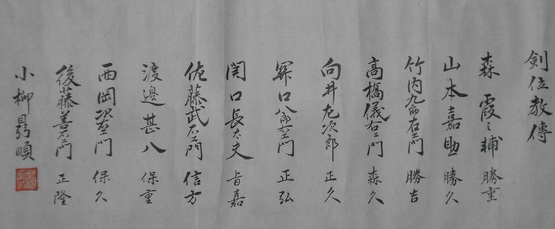 剣位教傳
森 霞之輔 勝重
山本嘉助 勝久
竹内九郎右衛門 勝吉
高橋儀右衛門 森久
向井左次郎 正久
関口八郎左衛門 正弘
関口長太夫 吉嘉
佐藤武右衛門 信方
渡邊甚八 保重
西岡治左衛門 保久
後藤善右衛門 正隆
小柳